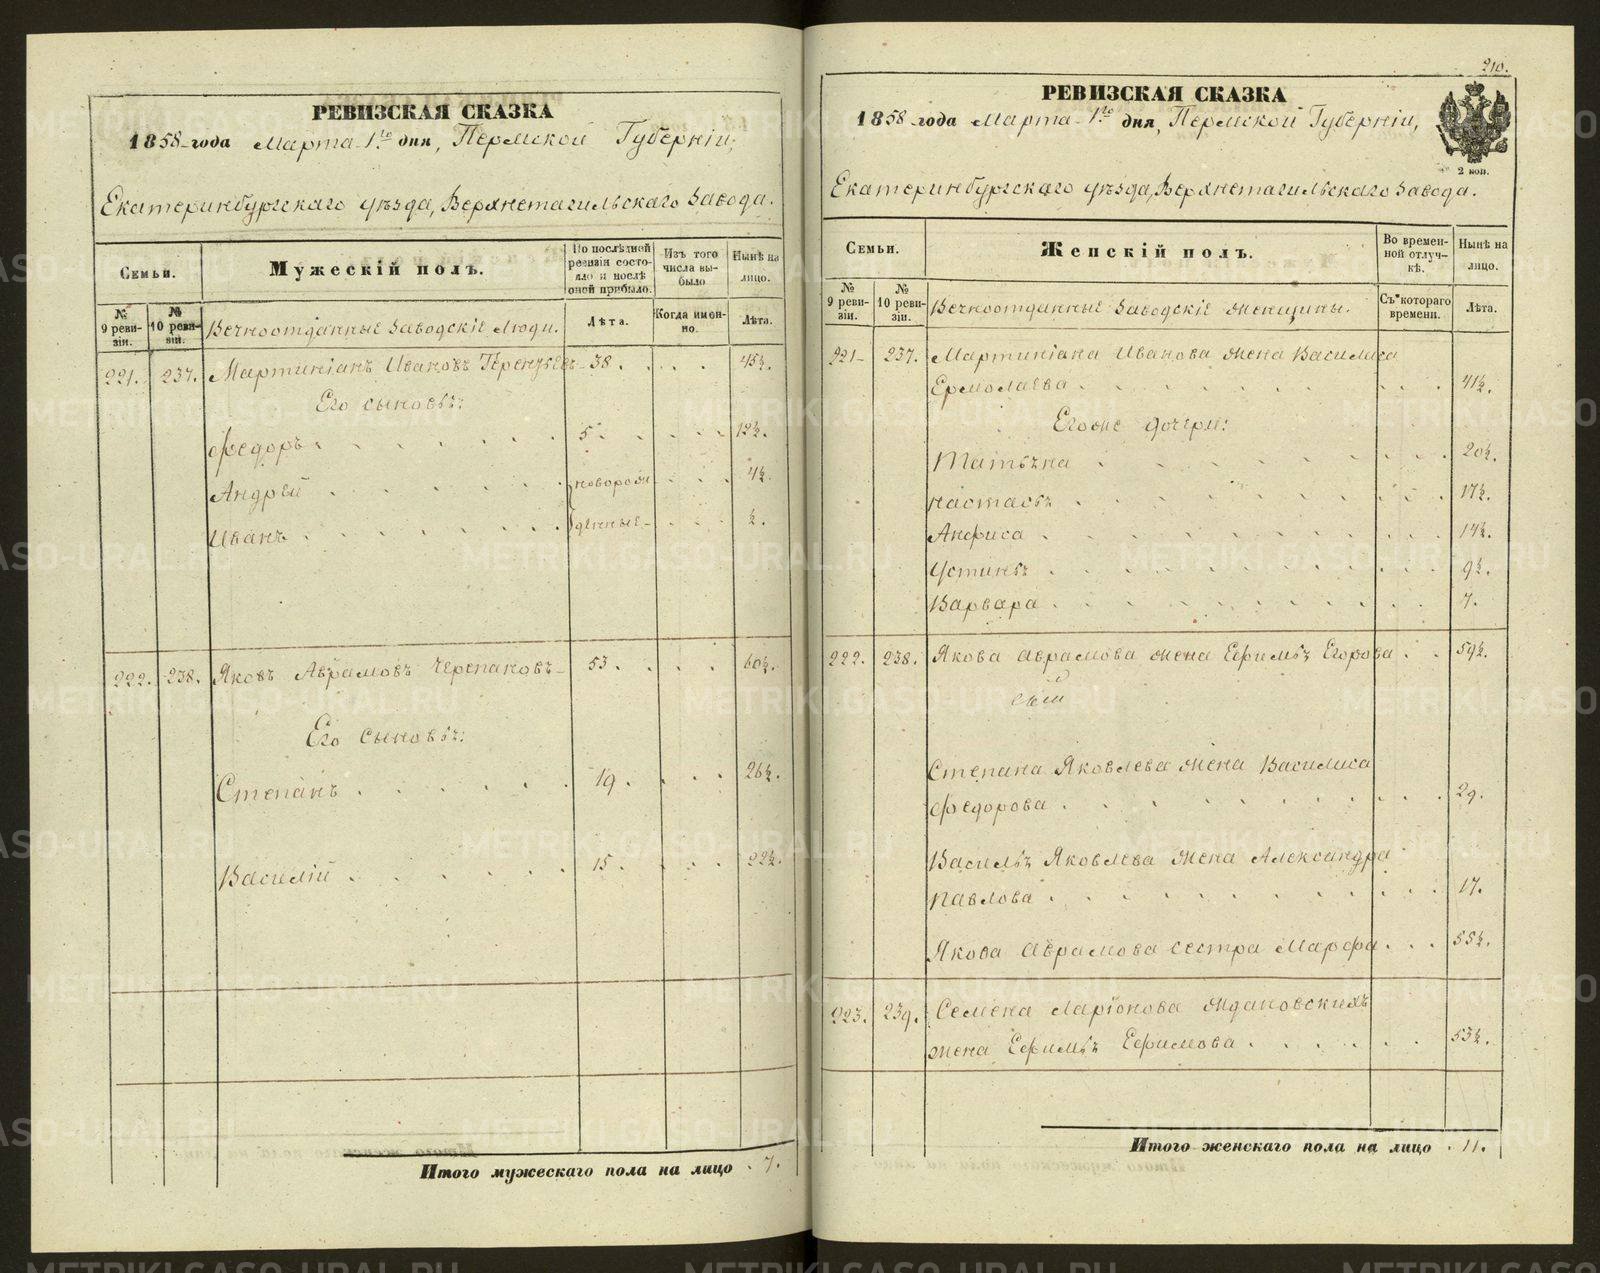 РЕВИЗСКАЯ СКАЗКА
1858 года Марта 1го дня, Пермской Губерніи,
Екатеринбургскаго уѣзда, Верхнетагильскаго Завода.
Семьи.
Мужескій полъ.
По послѣдней ревизіи состояло и послѣ оной прибыло.
Изъ того числа выбыло
Нынѣ на лицо.
№ 9 ревизіи.
№ 10 ревизіи.
Вечноотданные Заводскіе Люди.
Лѣта.
Когда именно.
Лѣта.
221. 237. Мартиніанъ Ивановъ 38. 45½.
Его сыновьѣ:
Федоръ 5 12½.
Андрей новорож 4½.
Иванъ денные ½.
222. 238. Яковъ Аврамовъ Черепановъ 53. 60½.
Его сыновьѣ:
Степанъ 19. 26½.
Василій 15. 22½.
Итого мужескаго пола на лицо 7.
210.
РЕВИЗСКАЯ СКАЗКА
1858 года Марта 1го дня, Пермской Губерніи,
2 коп.
Екатеринбургскаго уѣзда, Верхнетагильскаго Завода.
Семьи.
Женскій полъ.
Во временной отлучкѣ.
Нынѣ на лицо.
№ 9 ревизіи.
№ 10 ревизіи.
Вечноотданные Заводскіе Женщины.
Съ котораго времени.
Лѣта.
221 237. Мартиніана Иванова жена Василиса
Ермолаева 41½.
Егоже дочери:
Татьѣна 20½.
Настасьѣ 17½.
Анфиса 14½.
Устиньѣ 9½.
Варвара 7.
222. 238. Якова Аврамова жена Ефимьѣ Егорова 59½.
Степана Яковлева жена Василиса
Федорова 29.
Васильѣ Яковлева жена Александра
Павлова 17.
Якова Аврамова сестра Марфа 55½.
223. 239. Семена Ларіонова Ждановскихъ
жена Ефимьѣ Ефимова 53½.
Итого женскаго пола на лицо 11.
METRIKI.GASO-URAL.RU